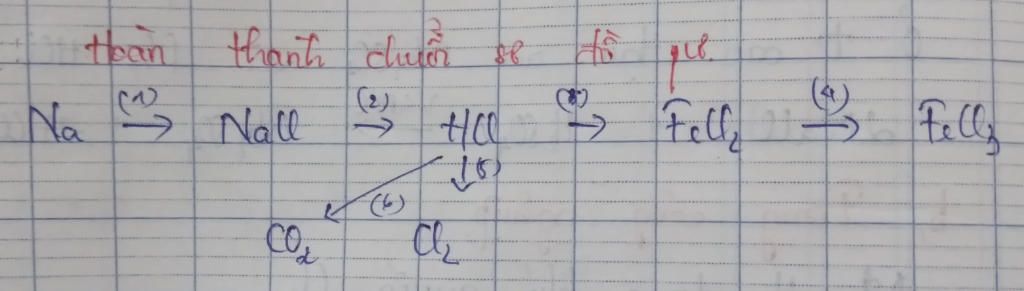 Hoàn thành chuỗi sơ đồ pư.
Na (1) → NaCl (2) → HCl (3) → FeCl2 (4) → FeCl3
↓(5)
(6)
CO2 Cl2